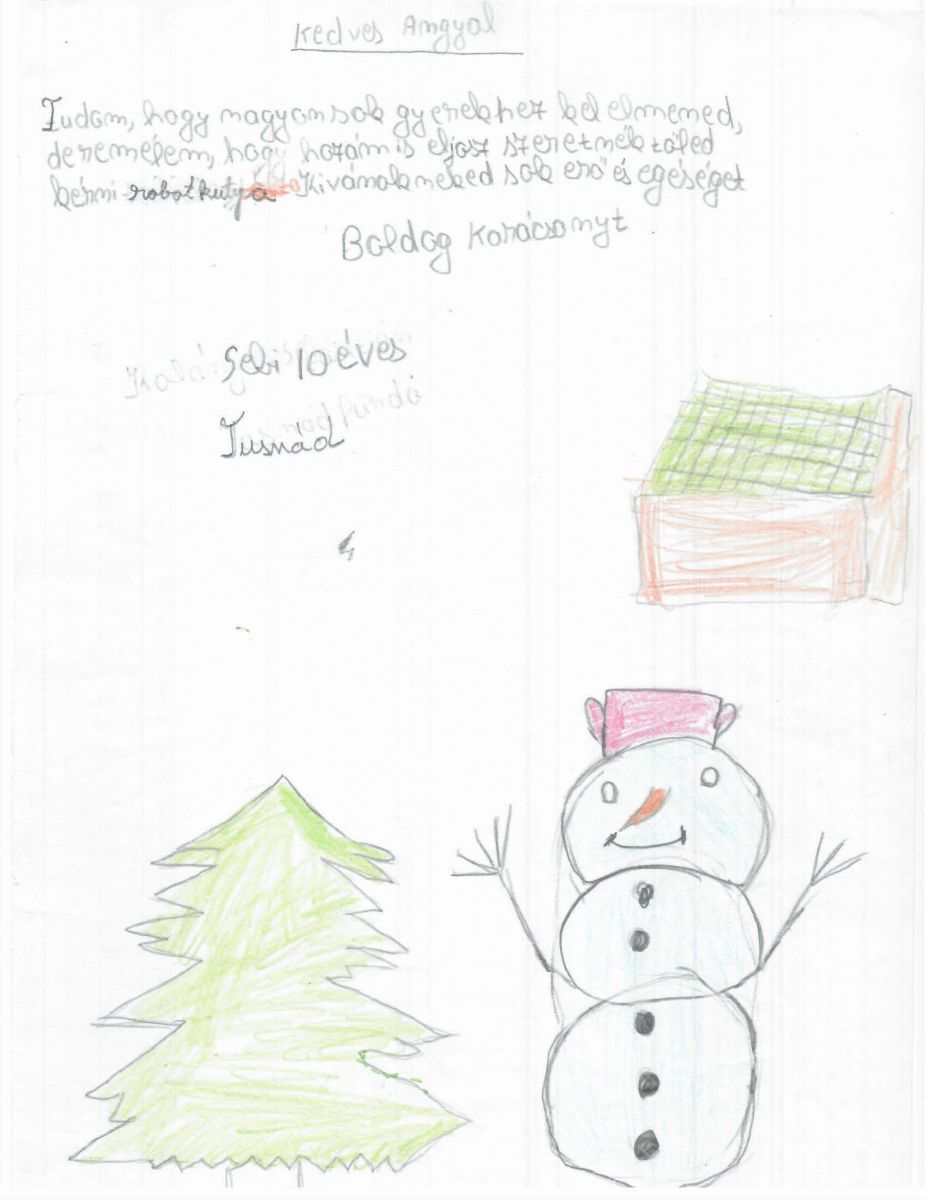 Kedves Angyal
Tudom, hogy nagyon sok gyerekhez kel elmened,
de remélem, hogy hozám is eljosz szeretnék tőled
kérni robotkutya Kivánok neked sok erő és egéséget
Boldog Karácsonyt
Sebi 10 éves
Tusnád